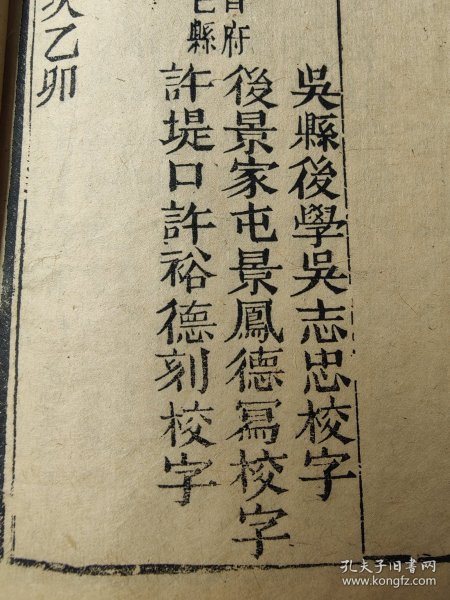 吳縣後學吳志忠校字
府
縣
後景家屯景鳳德冩校字
許堤口許裕德刻校字
乙卯
孔夫子旧书网
www.kongfz.com